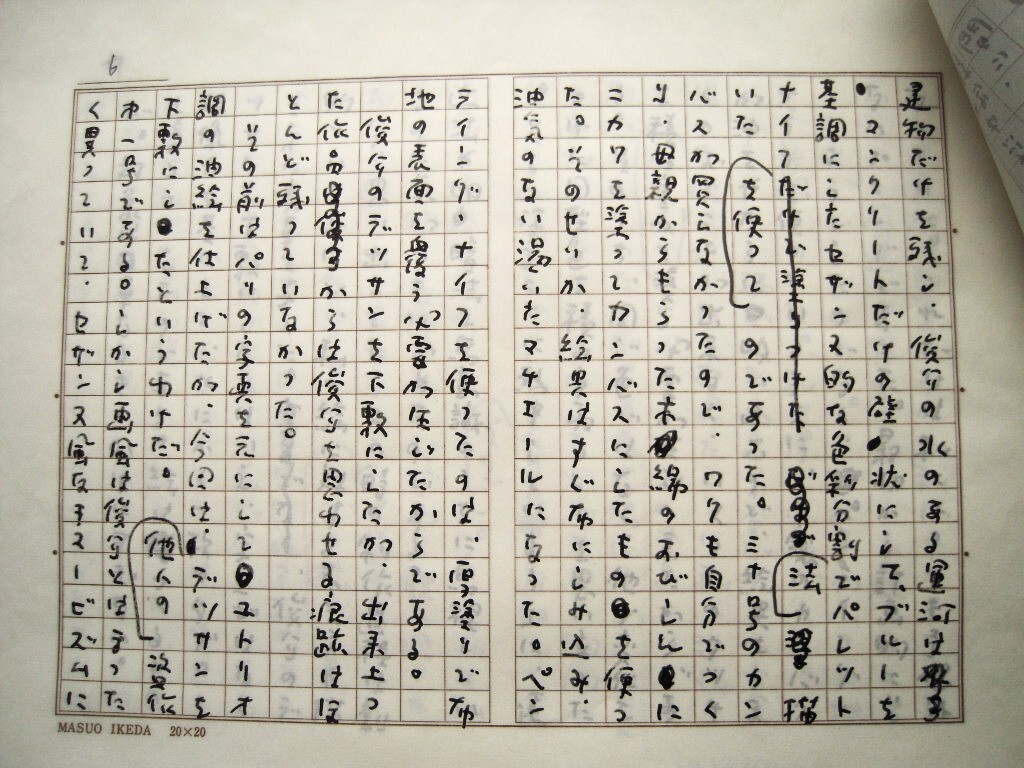 コンクリートだけの壁状にして、ブルーを
基調にしたセザンヌ的な色彩分割でパレット
ナイフ
いたを使ってのであった。
バスが買えなかったので、ワクも自分でつく
り、母親からもらった木綿のおびしんに
ニカワを塗ってカンバスにしたものを使っ
た。そのせいか、絵具はすぐ布にしみ込み
油気のない渇いたマチエールになった。ペン
ティング・ナイフを使ったのは、厚塗りで布
地の表面を覆う必要が
俊介のデッサンを下敷にしたが出来上っ
た作品からは俊介を思わせる痕跡はほ
とんど残っていなかった。
その前はパリの写真を元にしてユトリオ
調の油絵を仕上げたが、今回はデッサンを
下敷にしたというわけだ。他人の
一号である。しかし画風は俊介とはまった
く異っていて、セザンヌ風なキュービズムに
6
MASUO IKEDA 20×20